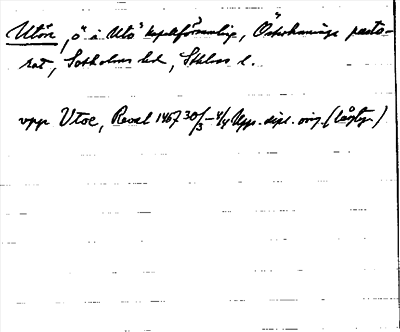 Utön, ö i Utö kapellförsamling, Österhaninge pasto-
rat, Sotholms hd, Sthlms l.
vpp Vtoe, Reval 1467 30/3-4/4 Upps. dipl. orig. (lågty.)